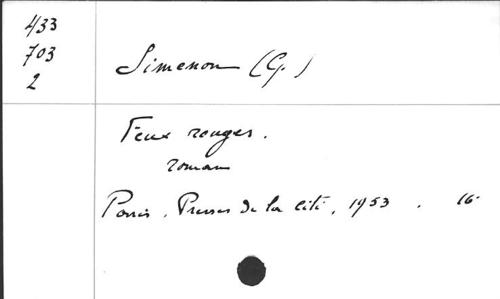 433
703
2
Simenon (G.)
Feux rouges.
roman
Paris. Presses de la cité, 1953. 16°